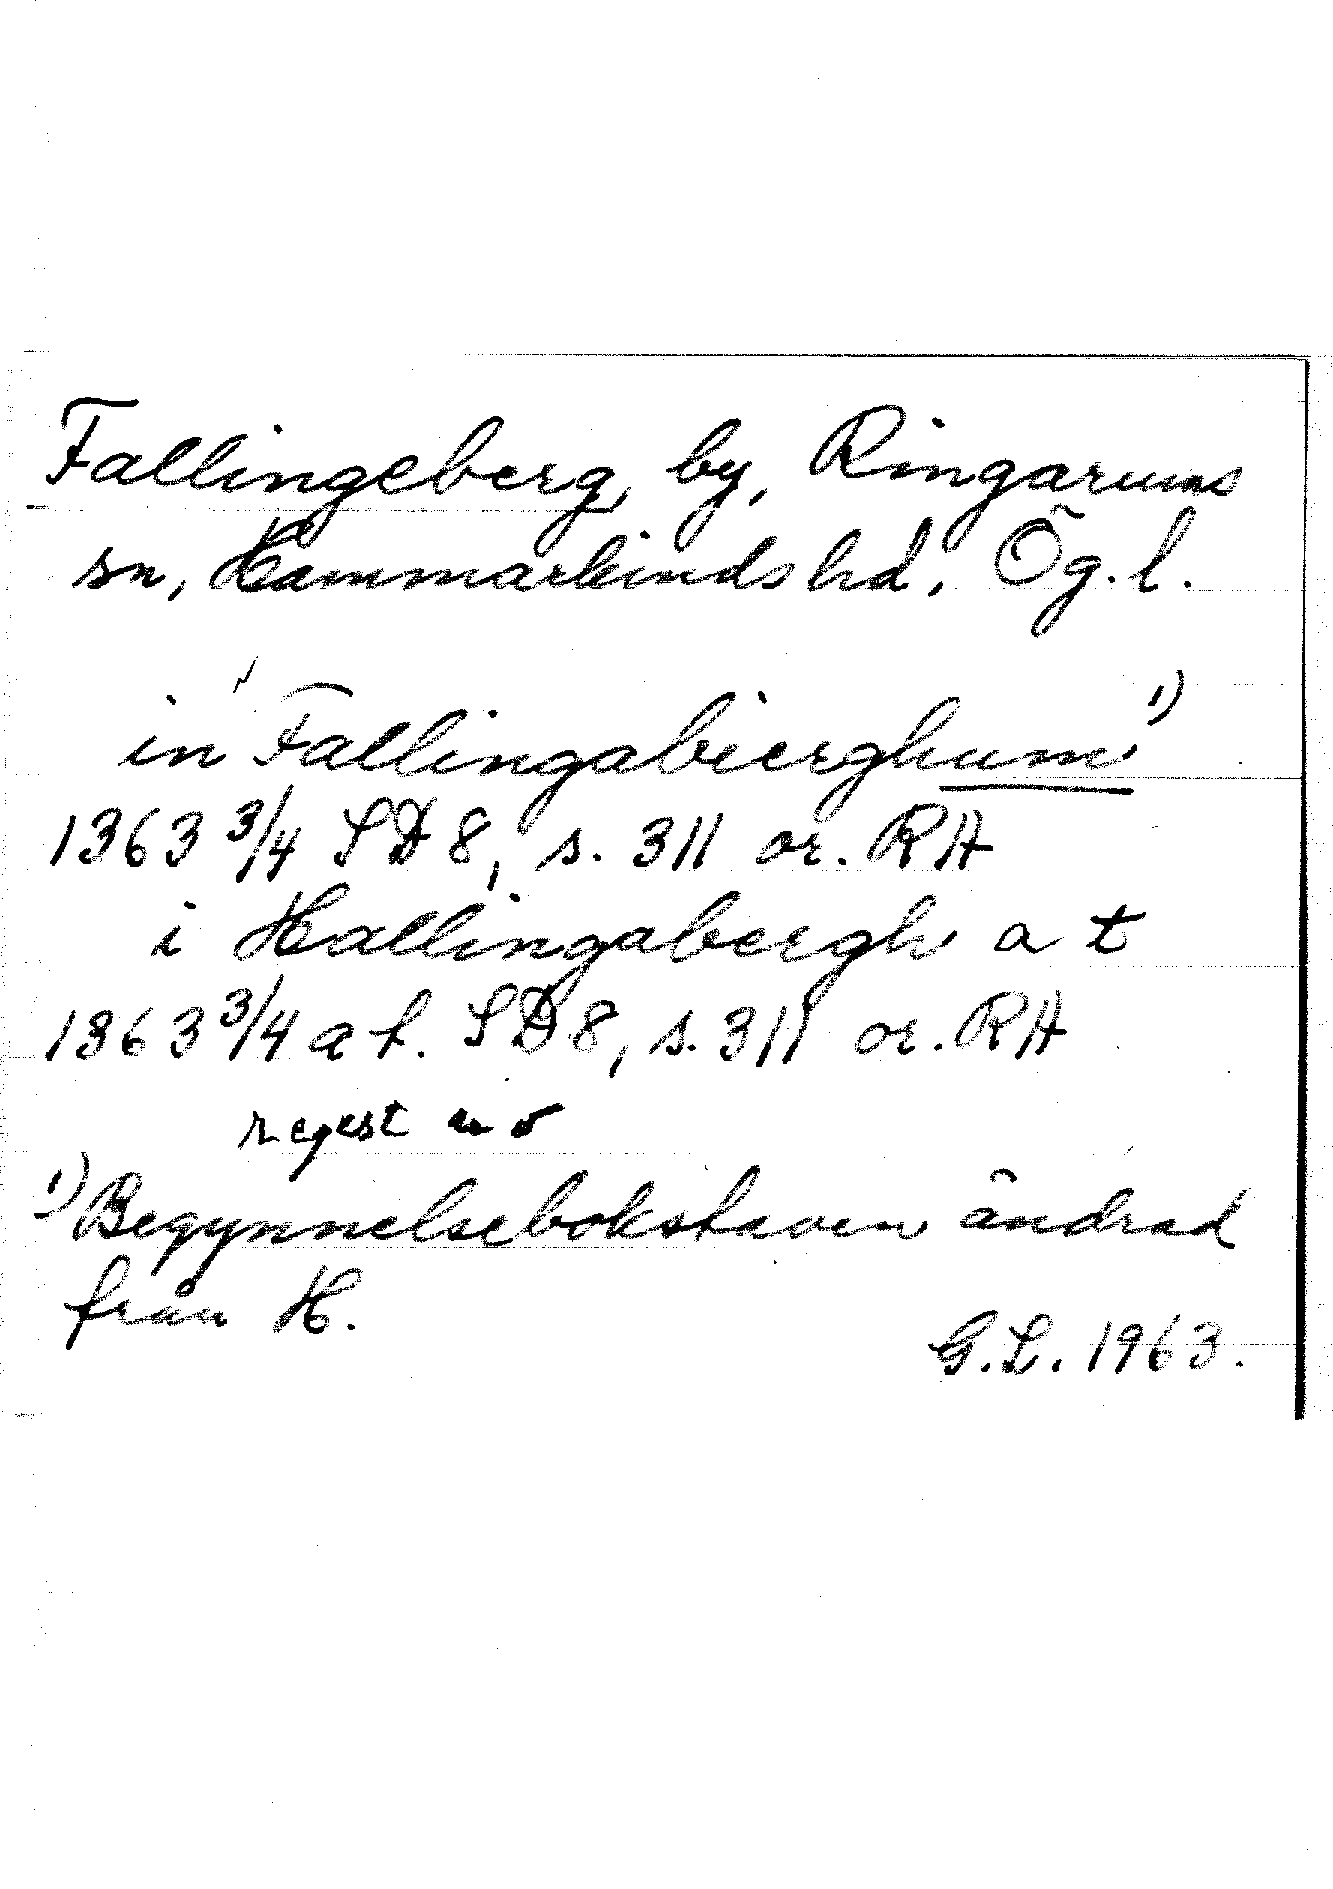 Fallingeberg, by, Ringarums
sn, Hammarkinds hd, Ög. l.
in Fallingabierghum 1)
1363 3/4 SD 8, s. 311 or. RA
i Hallingabergh a t
1363 3/4 a t. SD 8, s. 311 or. RA
regest
1) Begynnelsebokstaven ändrad
från H.
G.L. 1963.